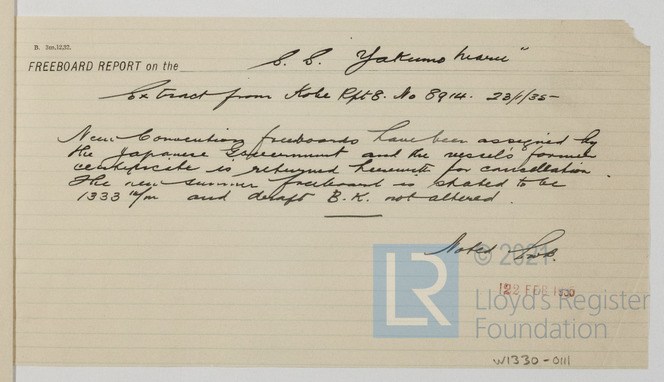 R. 3m.12.32.
FREEBOARD REPORT on the S. S. "Yakumo Maru"
Extract from Kobe Rpt 8. No 8914. 23/1/35-
New Convention freeboards have been assigned by
the Japanese Government and the vessel's former
certificate is returned herewith for cancellation.
The new summer freeboard is stated to be
1333 m/m and draft B.K. not altered.
Noted
© 2021
22 FEB
LR
Lloyd's Register
Foundation
W1330-0111